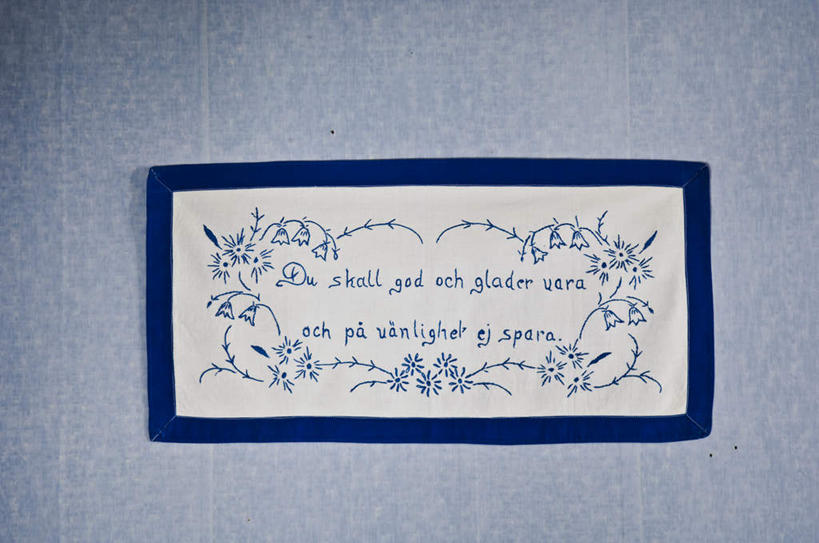 Du skall god och glader vara
och på vänlighet ej spara.